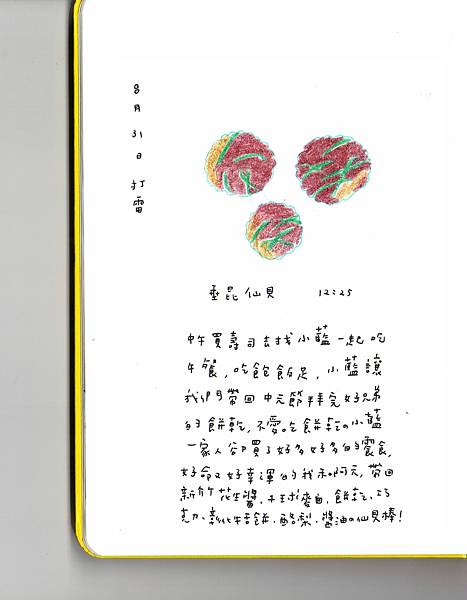 8月31日 打雷
垂昆仙貝 12:25
中午買壽司去找小藍一起吃
午餐,吃飽飯足,小藍讓
我們帶回中元節拜完好兄弟
的餅乾,不愛吃餅乾の小藍
一家人卻買了好多好多的零食,
好命又好幸運的我和阿元,帶回
新竹花生醬.
克力.彰化牛舌餅.酪梨.醬油の仙貝棒!